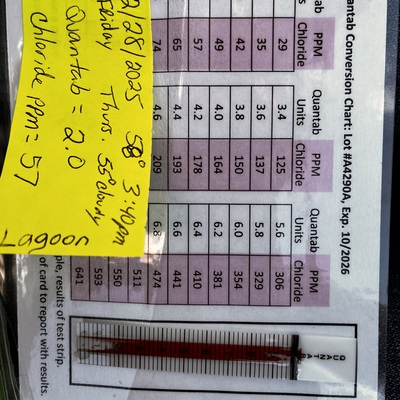 uantab Conversion Chart: Lot #A4290A, Exp. 10/2026
PPM Quantab PPM Quantab PPM
Chloride Units Chloride Units Chloride
29 3.4 125 5.6 306
35 3.6 137 5.8 329
42 3.8 150 6.0 354
49 4.0 164 6.2 381
57 4.2 178 6.4 410
65 4.4 193 6.6 441
74 4.6 209 6.8 474
511
550
593
641
ple, results of test strip.
of card to report with results.
2/28/2025 58° 3:40pm
Friday Thurs. 55° cloudy
Quantab = 2.0
Chloride ppm = 57
Lagoon
QUANTAB